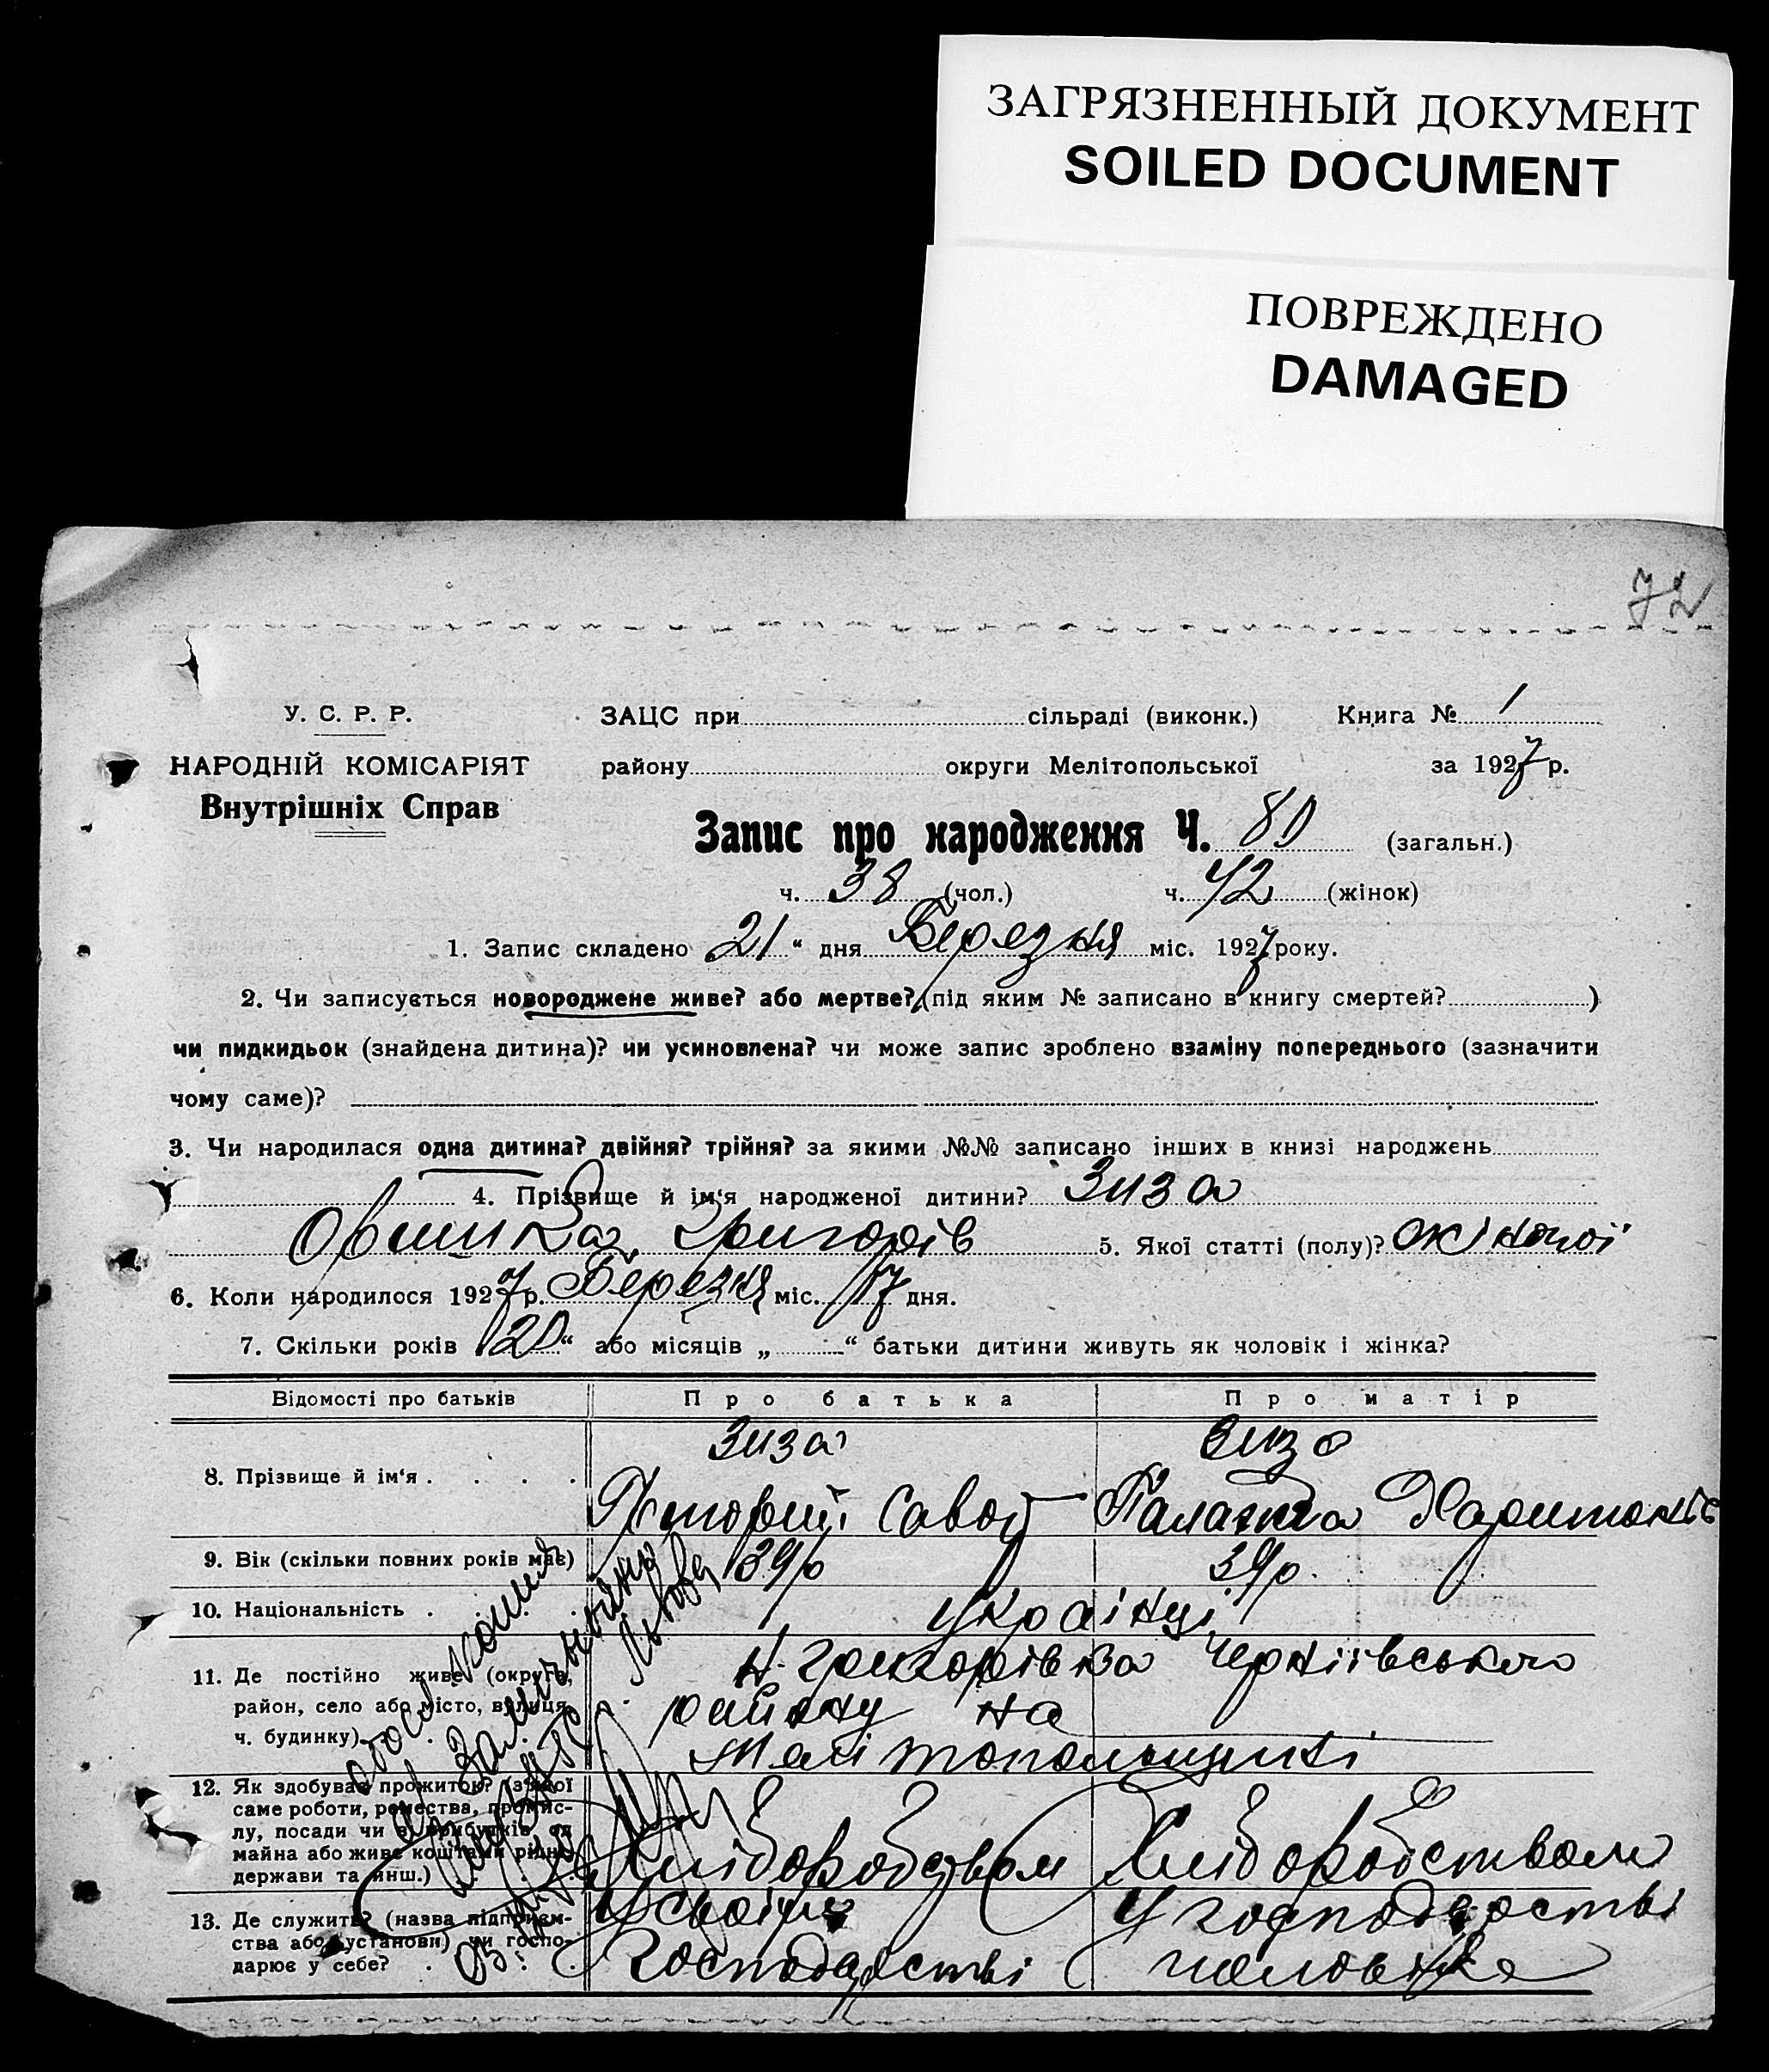 ЗАГРЯЗНЕННЫЙ ДОКУМЕНТ
SOILED DOCUMENT
ПОВРЕЖДЕНО
DAMAGED
72
У. С. Р. Р.
НАРОДНІЙ КОМІСАРІЯТ
Внутрішніх Справ
ЗАЦС при сільраді (виконк.) Книга № 1
району округи Мелітопольської за 1927 р.
Запис про народження Ч. 80 (загальн.)
ч. 38 (чол.) ч. 42 (жінок)
1. Запис складено 21 “ дня Березня міс. 1927 року.
2. Чи записується новороджене живе? або мертве? (під яким № записано в книгу смертей? )
чи пидкидьок (знайдена дитина)? чи усиновлена? чи може запис зроблено взаміну попереднього (зазначити
чому саме)?
3. Чи народилася одна дитина? двійня? трійня? за якими №№ записано інших в книзі народжень
4. Прізвище й ім‘я народженої дитини? Зиза
Григорів 5. Якої статті (полу)? жіночої
6. Коли народилося 1927 р. Березня міс. 17 дня.
7. Скільки років 20 “ або місяців „ “ батьки дитини живуть як чоловік і жінка?
Відомості про батьків Про батька Про матір
8. Прізвище й ім‘я . . . . Зиза Зиза
Савов Палажка Харитонів
9. Вік (скільки повних років має) 39 р 39 р.
10. Національність . Українці
11. Де постійно живе (округа,
район, село або місто, вулиця,
ч. будинку)
Н-Григорівка Чернііївського
району на
Мелітопольщині
12. Як здобуває прожиток? (з якої
саме роботи, ремества, промис-
лу, посади чи з прибутків од
майна або живе коштами рідні
держави та инш.)
Хліборобством Хліборобством
13. Де служить? (назва підприєм-
ства або установи) чи госпо-
дарює у себе? .
У своїм У господарстві
Господарстві чоловіка